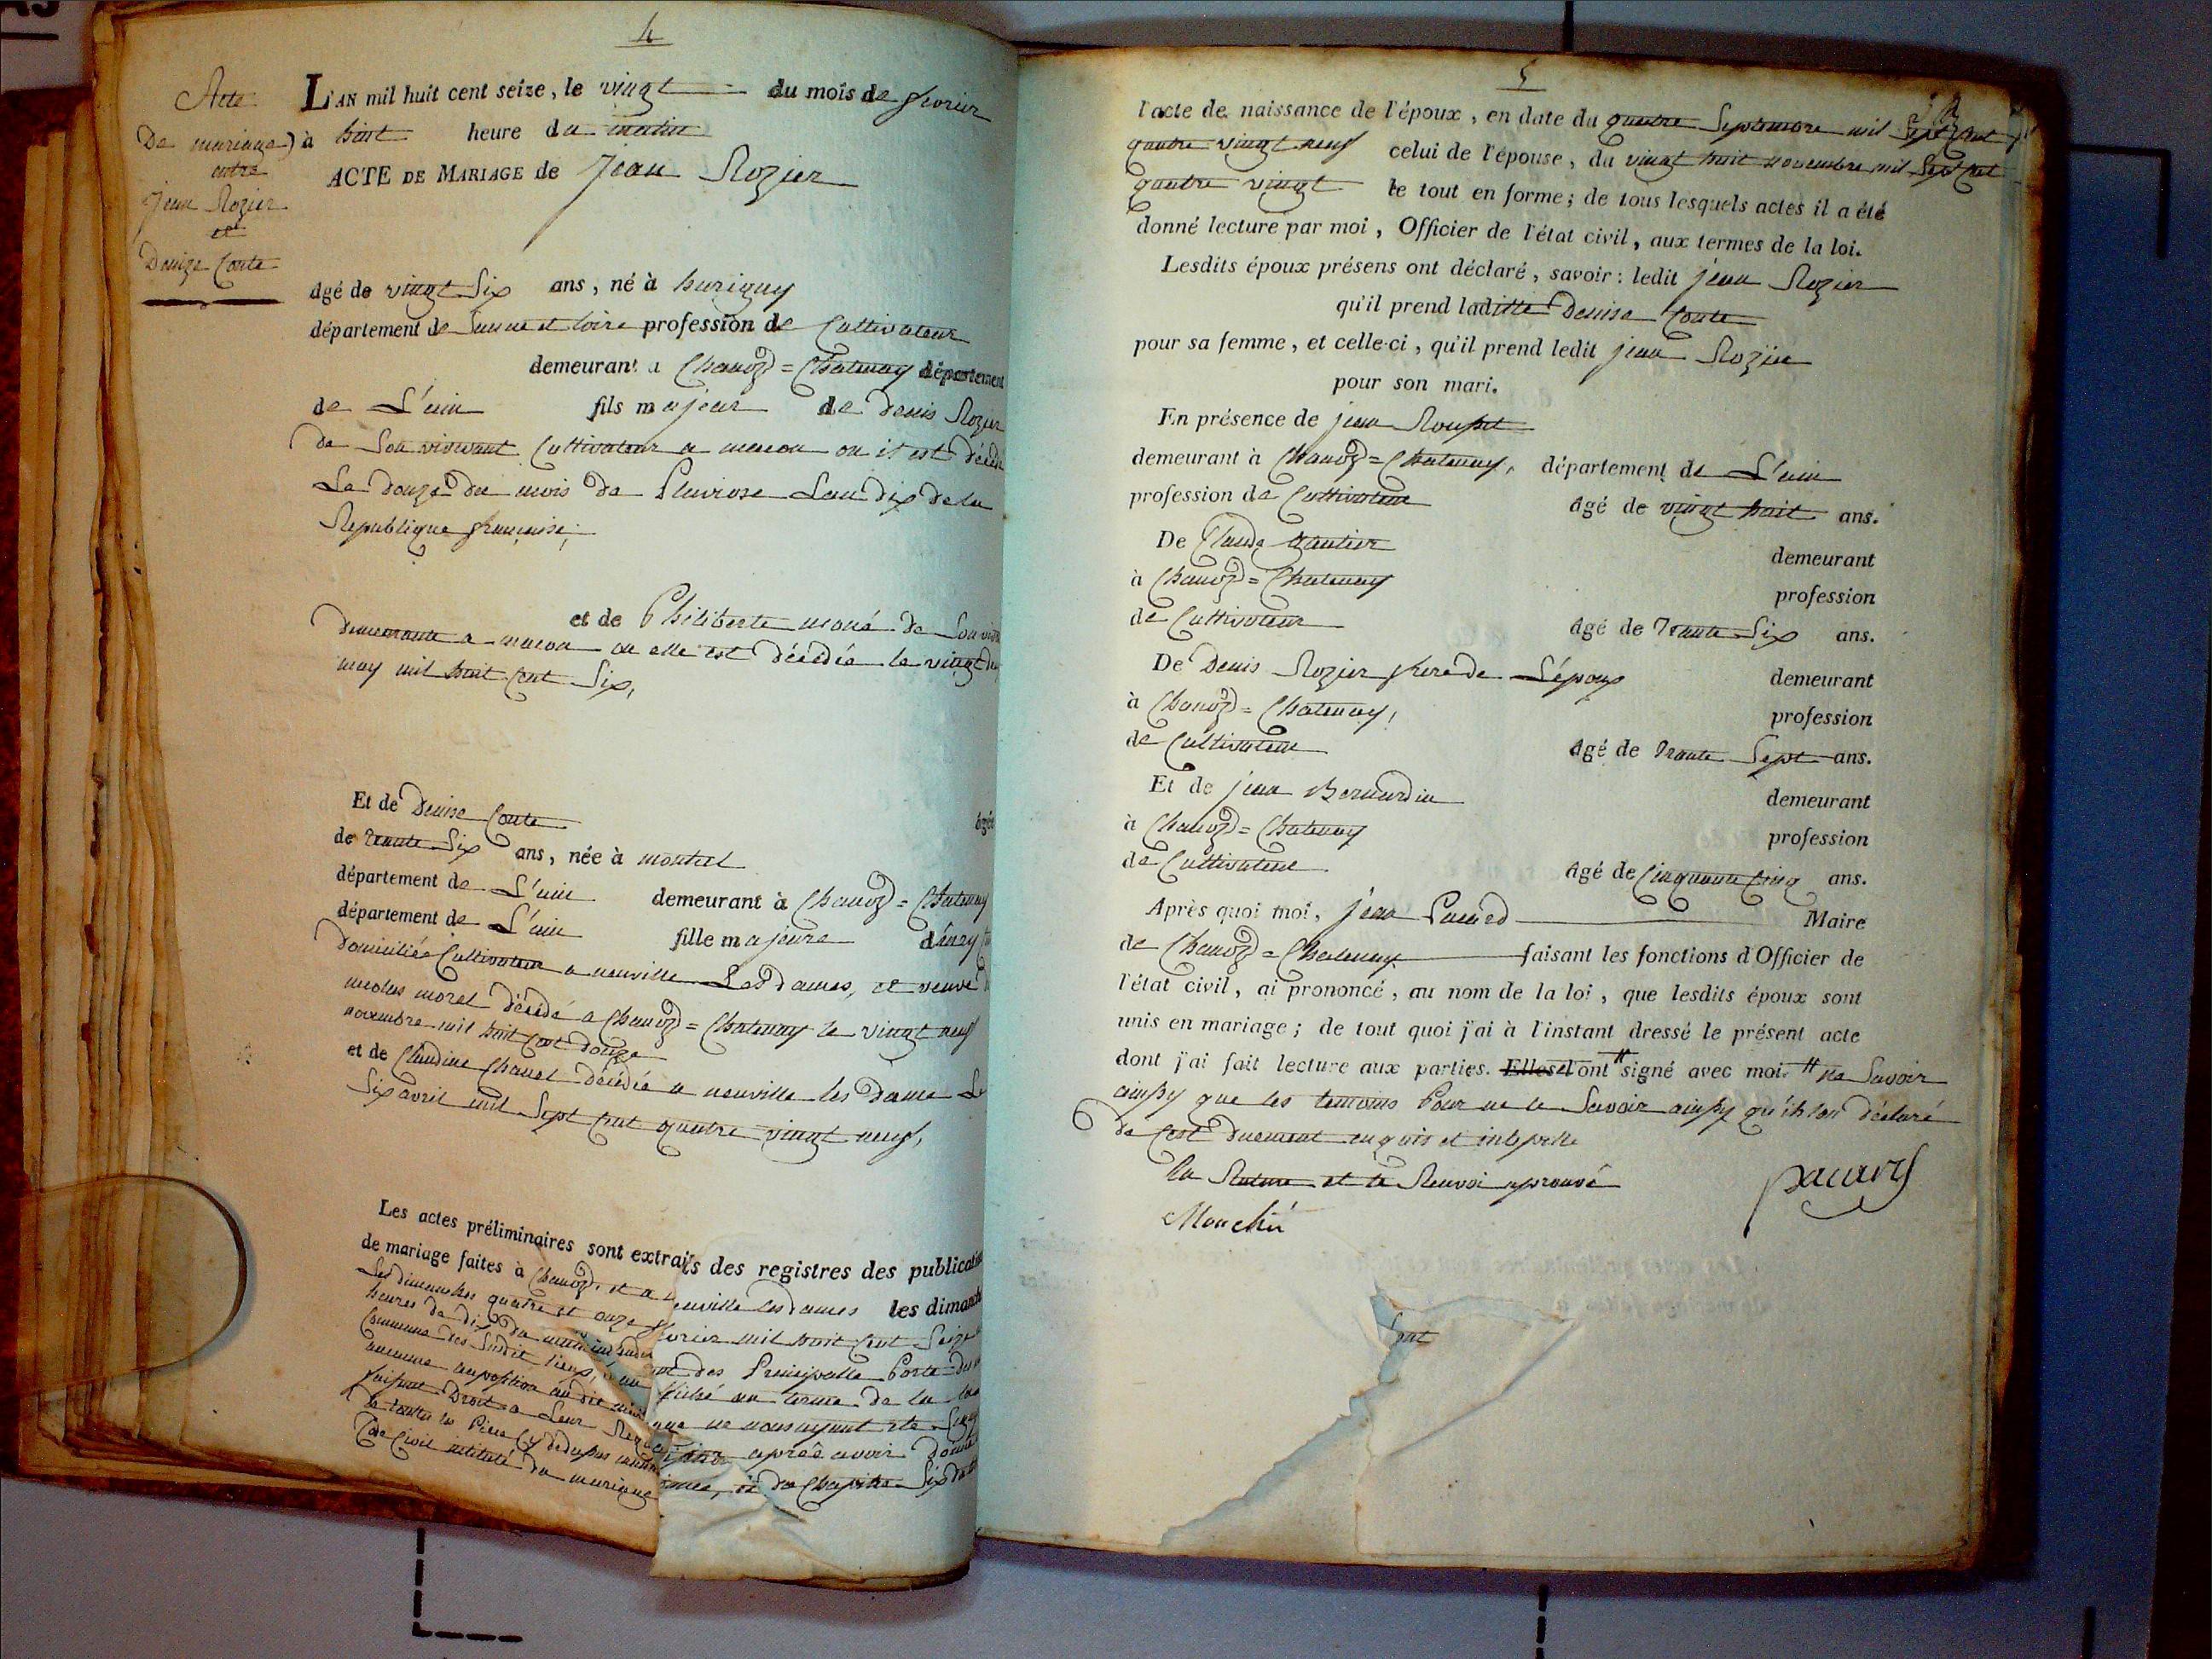 4
Acte
De mariage
entre
Jean Rozier
et
Denize Conte
L'AN mil huit cent seize, le vingt du mois de fevrier
à huit heure du matin
ACTE DE MARIAGE de Jean Rozier
âgé de vingt Six ans, né à hurigny
département de Saone et loire profession de Cultivateur
demeurant a Chanoz = Chatenay département
de L'ain fils majeur de denis Rozier
de Son vivant Cultivateur a macon ou il est décédé
Le douze du mois de Pluviose Lan dix de la
Republique française;
et de Philiberte moné de Son viv
demeurante a macon ou elle est décédée le vingt de
may mil huit Cent Six,
Et de Denise Conte âgée
de trante Six ans, née à montcel
département de L'ain demeurant à Chanoz = Chatenay
département de L'ain fille majeure
domiciliée Cultivateur a neuville Les Dames, et veuve
nicolas morel décédé a Chanoz = Chatenay le vingt neuf
novembre mil huit Cent douze
et de Claudine Chanel décédée a neuville les Dame Le
Six avril mil Sept Cent quatre vingt neuf,
Les actes préliminaires sont extraits des registres des publication
de mariage faites à Chanoz, et a neuville les dames les dimanch
Les dimanches quatre et onze fevrier mil huit Cent Seize
heures de dix du matin au devant des Principalle Porte des
Commune des Susdit lieux, affiché au terme de la loi
aucune oposition au dit mariage ne nous ayant ete
faisant Droit a Leur Requisition après avoir donné
de toutes les Piece Cy dedessus et du Chapitre Six du
Code Civil intitulé du mariage
5
l'acte de naissance de l'époux, en date du quatre Septembre mil Sept Cent
quatre vingt neuf celui de l'épouse, du vingt huit novembre mil Sept Cent
quatre vingt le tout en forme; de tous lesquels actes il a été
donné lecture par moi, Officier de l'état civil, aux termes de la loi.
Lesdits époux présens ont déclaré, savoir: ledit jean Rozier
qu'il prend laditte Denise Conte
pour sa femme, et celle-ci, qu'il prend ledit jean Rozier
pour son mari.
En présence de jean Rouset
demeurant à Chanoz = Chatenay, département de L'ain
profession de Cultivateur âgé de vingt huit ans.
De Claude Gautier demeurant
à Chanoz = Chatenay profession
de Cultivateur âgé de Trante Six ans.
De Denis Rozier frere de L'époux demeurant
à Chanoz = Chatenay, profession
de Cultivateur âgé de Trante Sept ans.
Et de jean Bernardin demeurant
à Chanoz = Chatenay profession
de Cultivateur âgé de Cinquante Cinq ans.
Après quoi moi, jean Pacard Maire
de Chanoz = Chatenay faisant les fonctions d'Officier de
l'état civil, ai prononcé, au nom de la loi, que lesdits époux sont
unis en mariage; de tout quoi j'ai à l'instant dressé le présent acte
dont j'ai fait lecture aux parties. Elles et ont # signé avec moi. # ne Savoir
ainsy que les temoins Pour ne le Savoir ainsy qu'ils lon déclaré
de Cest duement enquis et intepellé
La Rature et le Renvoi aprouvé
pacard
Monchù